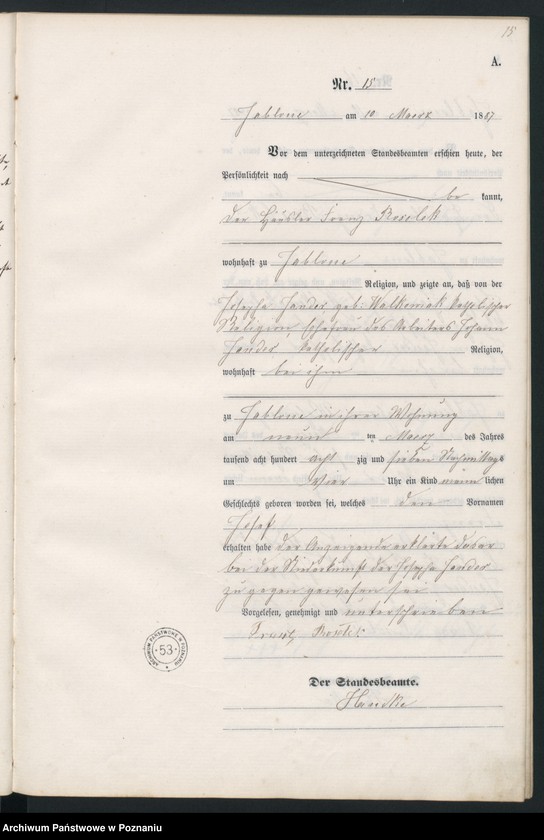 15
A.
Nr. 15
Jablone am 10 Maerz 1887
Vor dem unterzeichneten Standesbeamten erschien heute, der
Persönlichkeit nach
be kannt,
der Häusler Franz Rosolek
wohnhaft zu Jablone
Religion, und zeigte an, daß von der
Josepha Hander geb: Walkowiak katholischer
Religion, Ehefrau des Arbeiters Johann
Hander katholischer Religion,
wohnhaft bei ihm
zu Jablone in ihrer Wohnung
am neun ten Maerz des Jahres
tausend acht hundert acht zig und sieben Nachmittags
um vier Uhr ein Kind männ lichen
Geschlechts geboren worden sei, welches den Vornamen
Josef
erhalten habe der Anzeigende erklärte dass er
bei der Niederkunft der Josepha Hander
zu gegen gewesen sei
Vorgelesen, genehmigt und unterschrieben
Franz Rosolek
Der Standesbeamte.
ARCHIWUM PAŃSTWOWE W POZNANIU
53
Archiwum Państwowe w Poznaniu